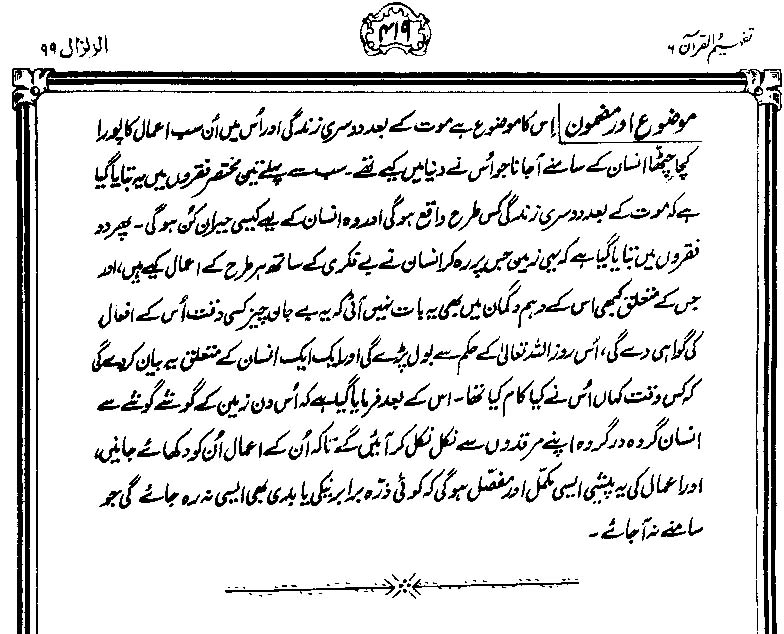 تفہیم القرآن ۶
۴۱۹
الزلزال ۹۹
موضوع اور مضمون اِس کا موضوع ہے موت کے بعد دوسری زندگی اور اُس میں اُن سب اعمال کا پورا
کچا چٹھا انسان کے سامنے آ جانا جو اُس نے دنیا میں کیے تھے۔ سب سے پہلے تین مختصر فقروں میں یہ بتایا گیا
ہے کہ موت کے بعد دوسری زندگی کس طرح واقع ہوگی اور وہ انسان کے لیے کیسی حیران کُن ہوگی۔ پھر دو
فقروں میں بتایا گیا ہے کہ یہی زمین جس پر رہ کر انسان نے بے فکری کے ساتھ ہر طرح کے اعمال کیے ہیں، اور
جس کے متعلق کبھی اس کے وہم و گمان میں بھی یہ بات نہیں آئی کہ یہ بے جان چیز کسی وقت اُس کے افعال
کی گواہی دے گی، اُس روز اللہ تعالیٰ کے حکم سے بول پڑے گی اور ایک ایک انسان کے متعلق یہ بیان کر دے گی
کہ کس وقت کہاں اُس نے کیا کام کیا تھا۔ اس کے بعد فرمایا گیا ہے کہ اُس دن زمین کے گوشے گوشے سے
انسان گروہ در گروہ اپنے مرقدوں سے نکل نکل کر آئیں گے تاکہ اُن کے اعمال اُن کو دکھائے جائیں،
اور اعمال کی یہ پیشی ایسی مکمل اور مفصّل ہوگی کہ کوئی ذرّہ برابر نیکی یا بدی بھی ایسی نہ رہ جائے گی جو
سامنے نہ آ جائے۔